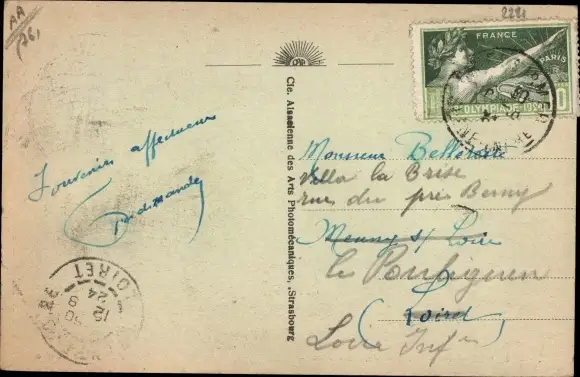 AA
2281
FRANCE
PARIS
OLYMPIADE 1924
Souvenirs affectueux
Cie. Alsacienne des Arts Photomécaniques, Strasbourg
Monsieur
Villa la Brise
rue du pré Berny
Meung s/ Loire
Le Pouliguen
Loiret
Loire Infre
LOIRET
12
9
24